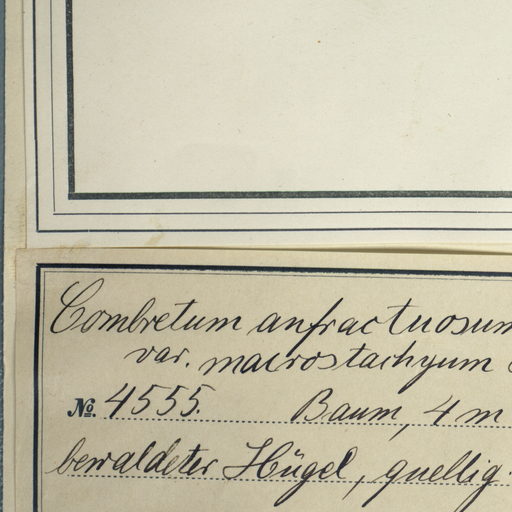 Combretum anfractuosum
var. macrostachyum
No. 4555. Baum, 4 m
bewaldeter Hügel, quellig.